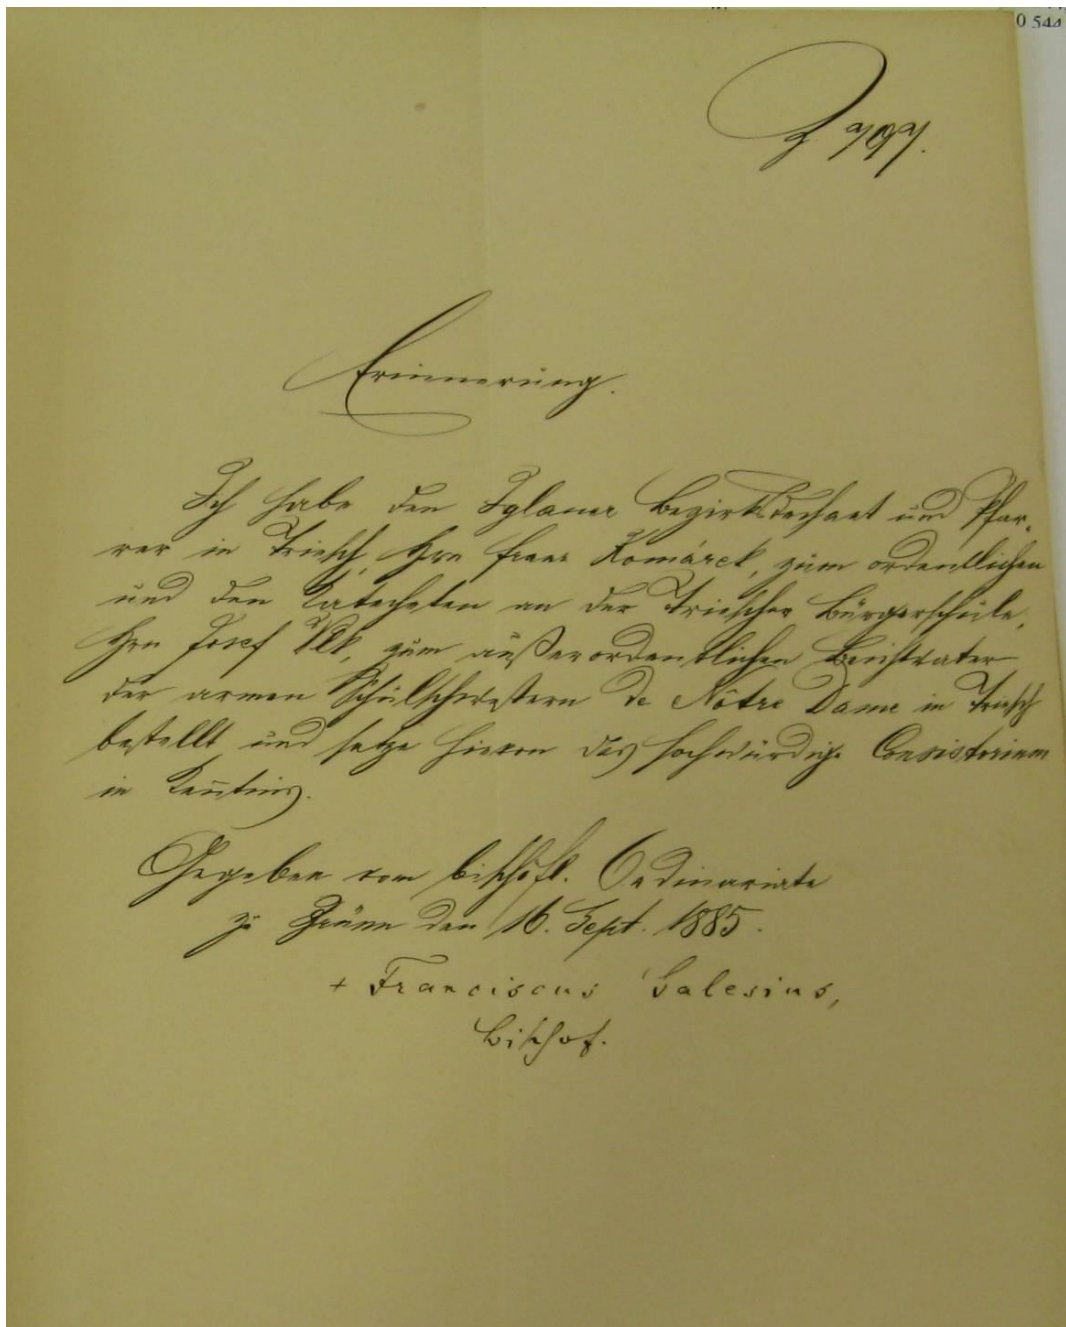 0 544
Z 797.
Erinnerung.
Ich habe den Iglauer Bezirksdechant und Pfar-
rer in Triesch, Hrn Franz Komárek, zum ordentlichen
und den Katecheten an der Triescher Bürgerschule,
Hrn Josef, zum außerordentlichen Beichtvater
der armen Schulschwestern de Nôtre Dame in Triesch
bestellt und setze hievon das hochwürdige Consistorium
in Kentnis.
Gegeben vom bischöfl. Ordinariate
zu Brünn den 16. Sept. 1885.
+ Franciscus Salesius,
Bischof.